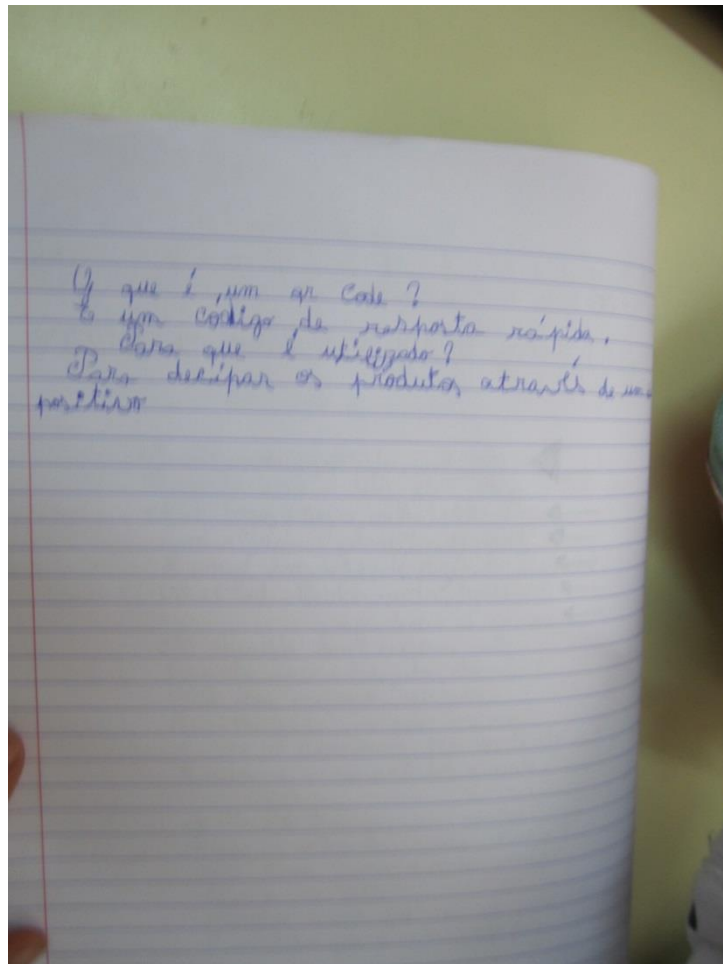 O que é um qr Code ?
É um codigo de resposta rápida.
Para que é utilizado?
Para decipar os produtos através de um
positivo